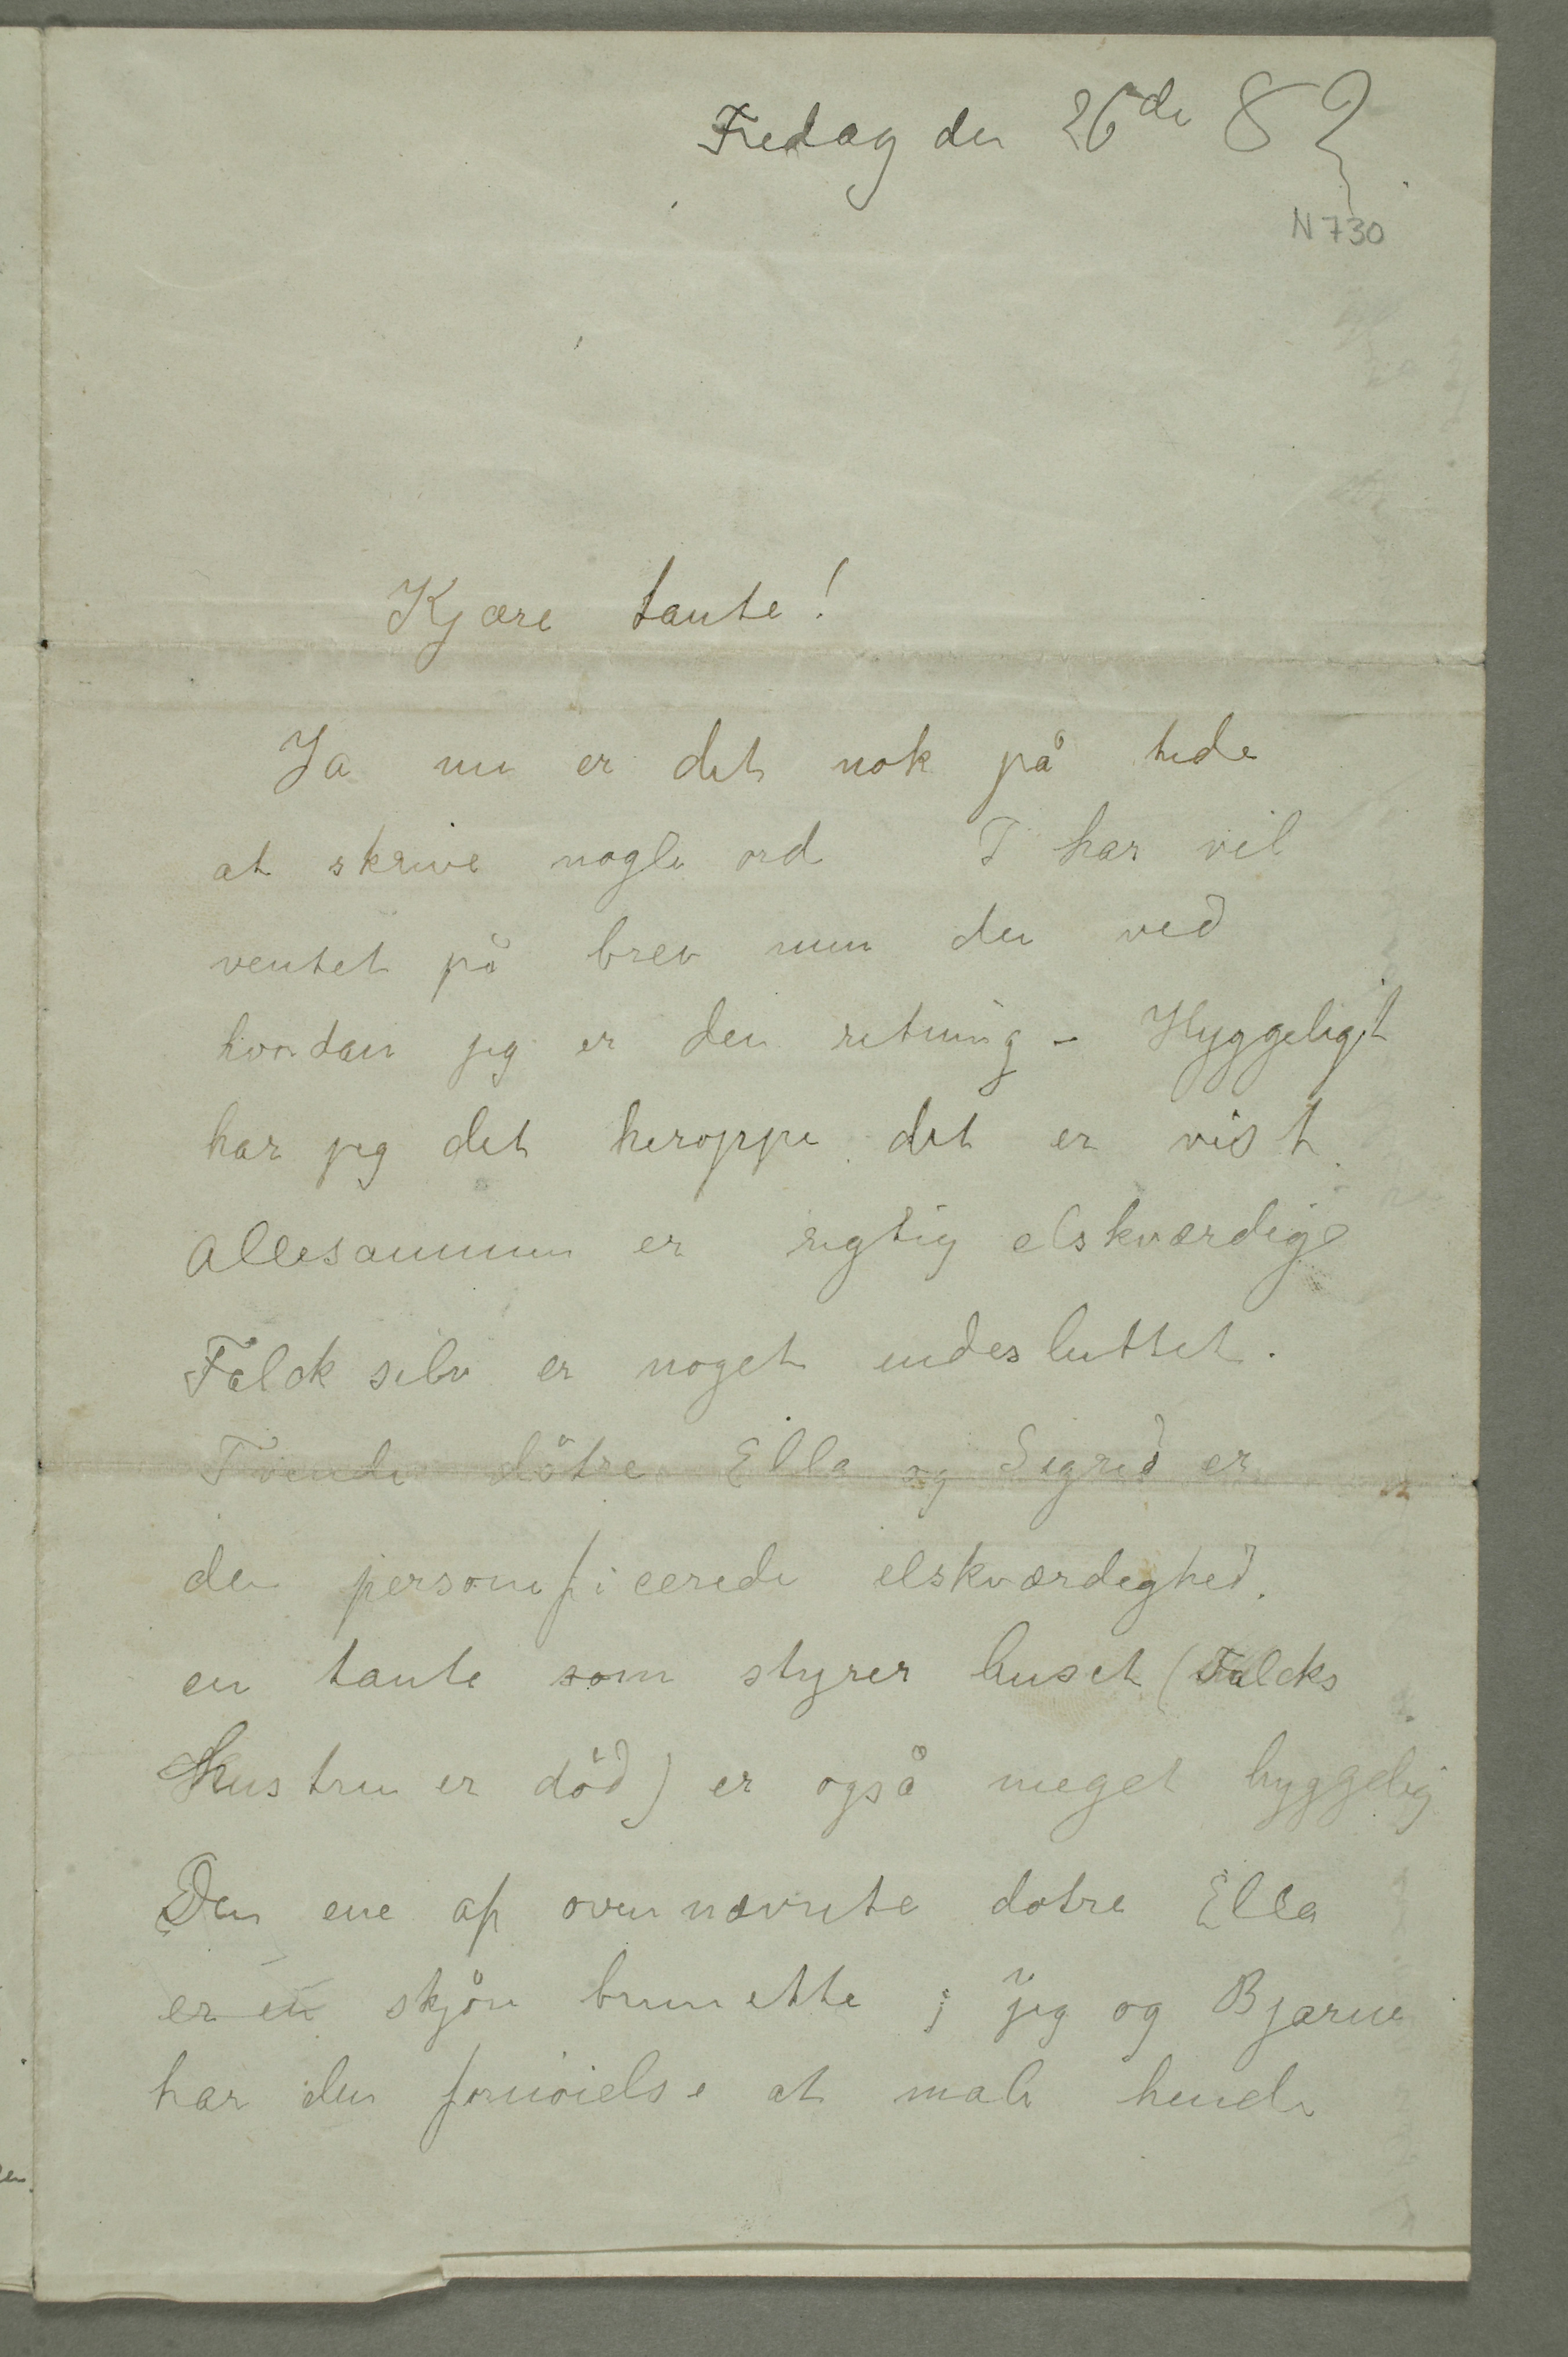 Fredag den 26de 82
N 730
Kjære tante!
Ja nu er det nok på tide
at skrive nogle ord I har vel
ventet på brev men du ved
hvordan jeg er den retning – Hyggeligt
har jeg det heroppe det er vist.
Allesammen er rigtig elskværdige
Falck selv er noget indesluttet.
Tvende dötre Ella og Sigrid er
den personificerede elskværdighed.
en tante som styrer huset (Falcks
Hustru er död) er også meget hyggelig
Den ene af ovennævnte dotre Ella
er en skjön brunette ; jeg og Bjarne
har den fornöielse at male hende